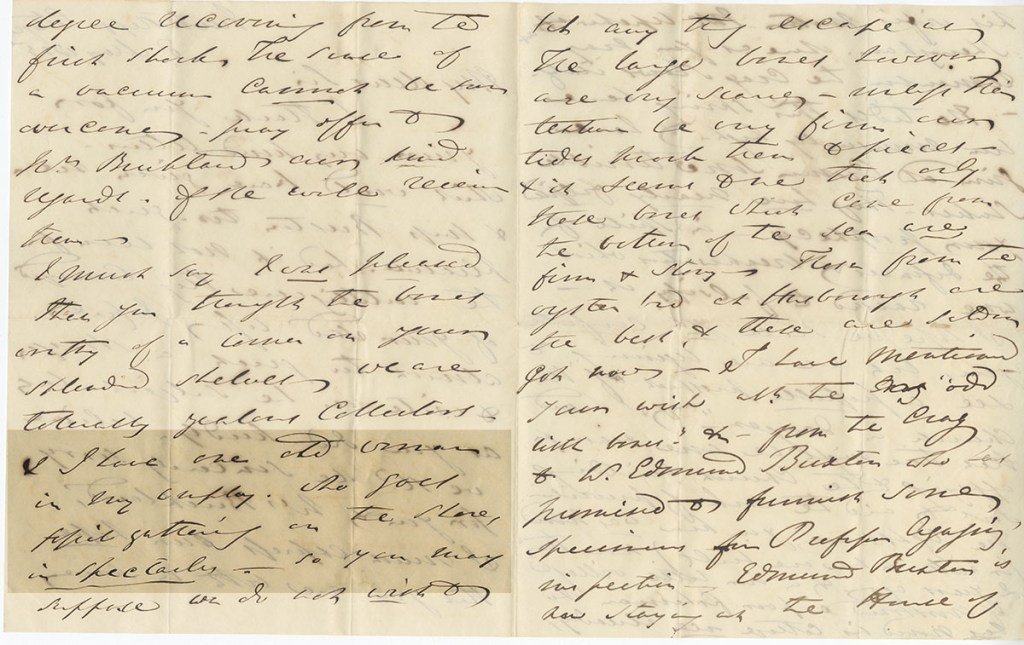 degree recovering from the
first shock, the sense of
a vacuum cannot be soon
overcome, pray offer to
Mrs Buckland our kind
regards. if she will receive
them
I must say I was pleased
that you thought the bones
worthy of a corner on your
splendid shelves, we are
tolerably zealous Collectors.
& I have one old woman
in my employ. who goes
fossil gathering on the shore,
in spectacles — so you may
suppose we do not wish to
let any thing escape us
The large bones however
are very scarce — unless their
texture be very firm our
tides knock them to pieces —
& it seems to me that only
those bones which come from
the bottom of the sea are
firm & strong Those from the
oyster bed at Hasborough are
the best, & these are seldom
got now — I have mentioned
your wish abt the "odd
with bones" — from the Crag
to W. Edmund Buxton who has
promised to furnish some
specimens for Professor Agassiz'
inspection Edmund Buxton is
now staying at the House of